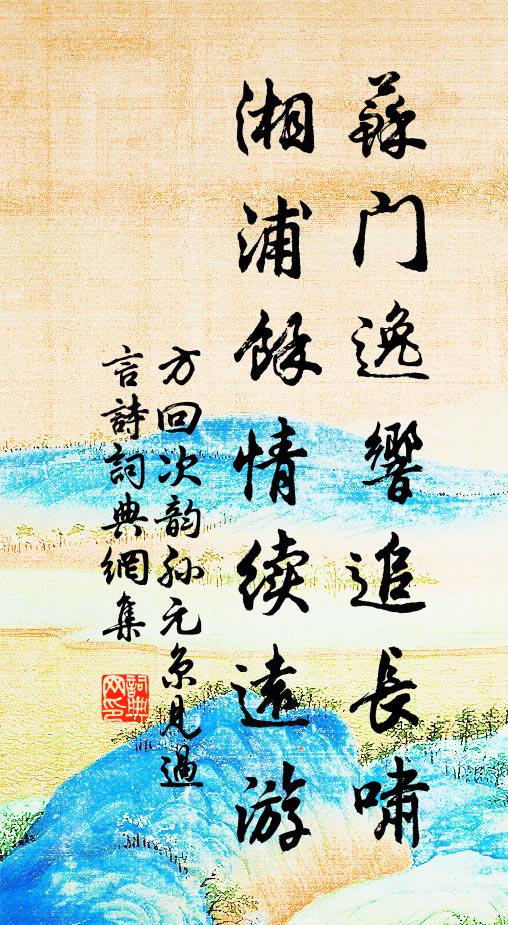 蘇门逸響追長嘯
湘浦餘情續遠游
方回次韵孙元京见過
言詩詞典網集
詞典网印